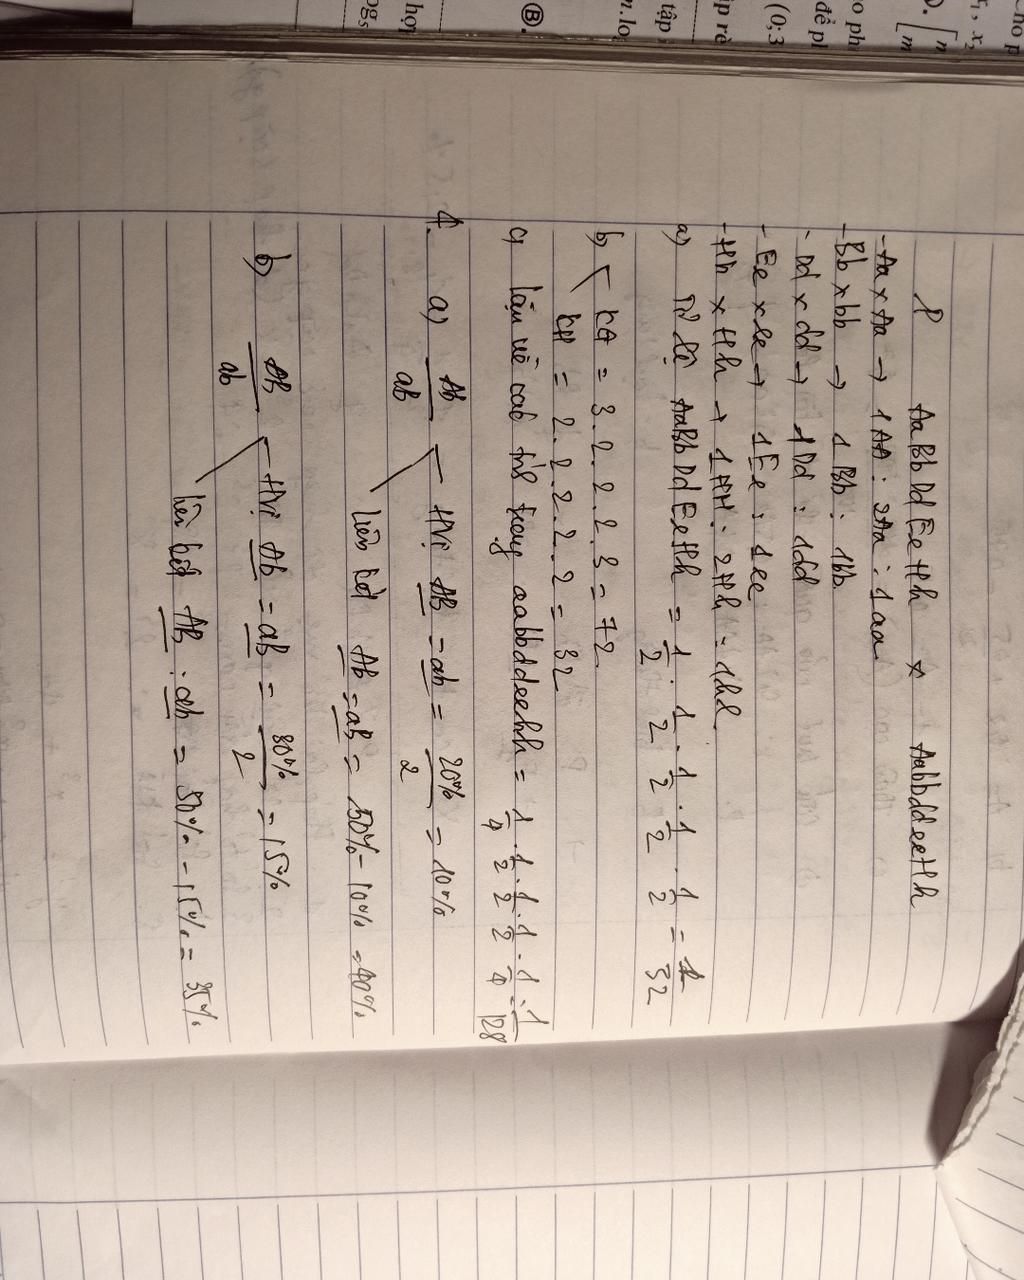 P AaBbDdEeHh x AabbddeeHh
- Aa x Aa → 1AA : 2Aa : 1aa
- Bb x bb → 1Bb : 1bb
- Dd x dd → 1Dd : 1dd
- Ee x ee → 1Ee : 1ee
- Hh x Hh → 1HH : 2Hh : 1hh
a) Tỉ lệ AaBbDdEeHh = 1/2 . 1/2 . 1/2 . 1/2 . 1/2 = 1/32
b) KG = 3.2.2.2.3 = 72
KH = 2.2.2.2.2 = 32
c) lặn về cả tt aabbddeehh = 1/4 . 1/2 . 1/2 . 1/2 . 1/4 = 1/128
4. a) Ab/aB HVị AB = ab = 20%/2 = 10%
liên kết Ab = aB = 50% - 10% = 40%
b) AB/ab HVị Ab = aB = 30%/2 = 15%
liên kết AB : ab = 50% - 15% = 35%
x₁, x₂
(0;3
tập
Ⓑ.